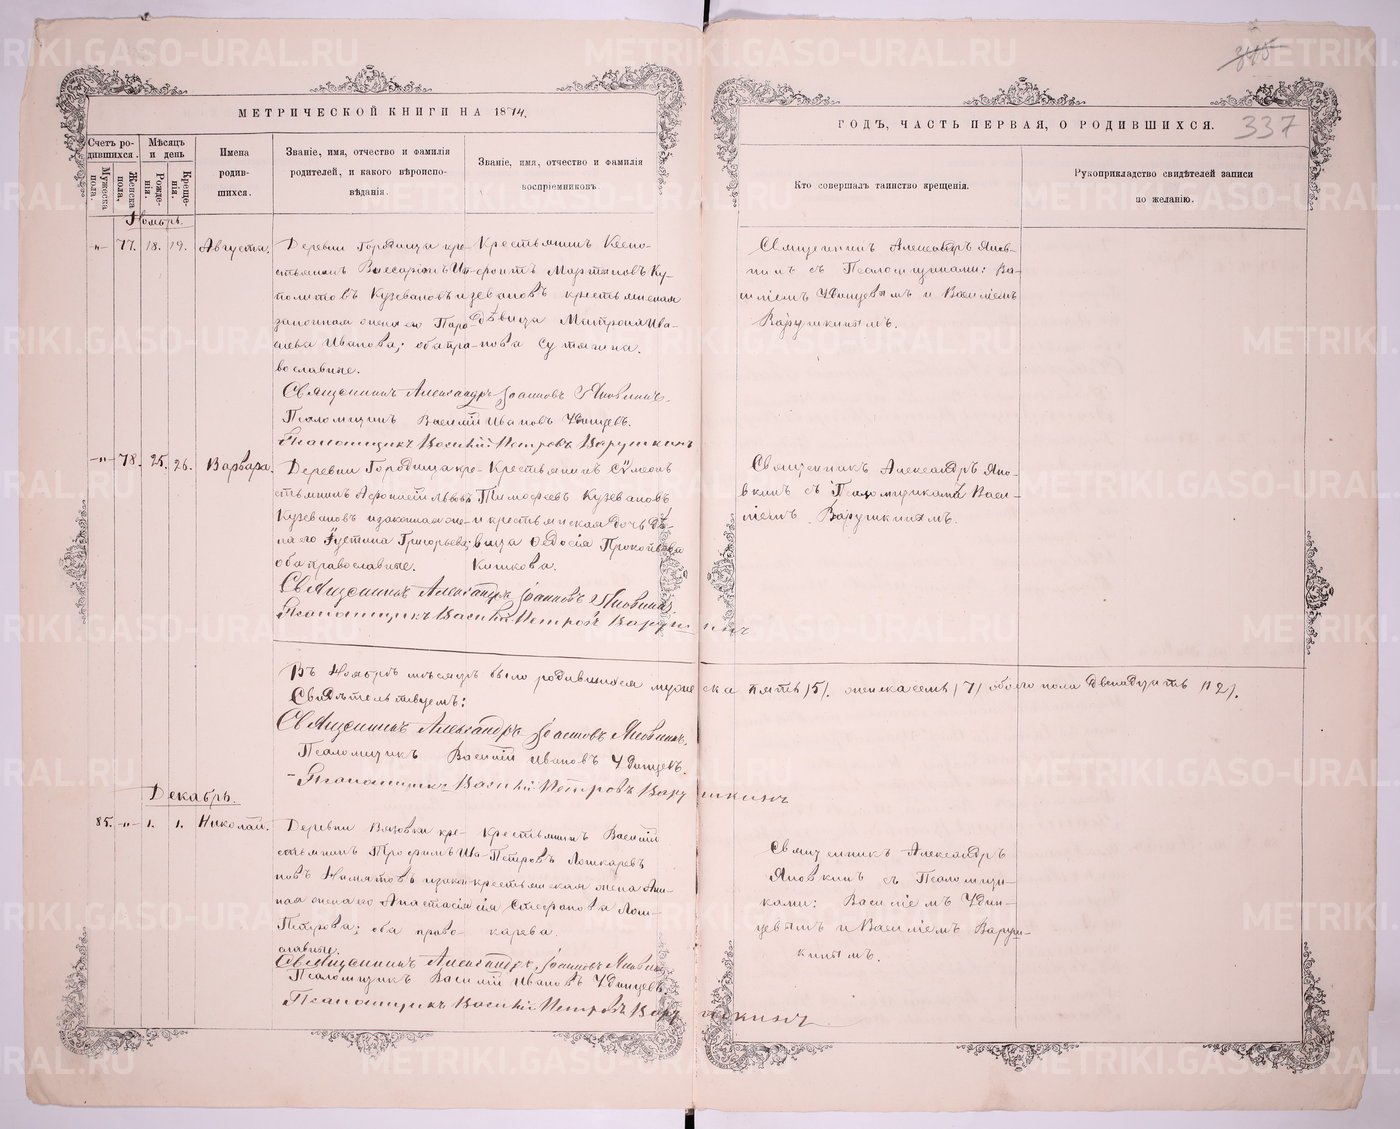 345
337
МЕТРИЧЕСКОЙ КНИГИ НА 1874.
ГОДЪ, ЧАСТЬ ПЕРВАЯ, О РОДИВШИХСЯ.
Счетъ родившихся.
Мужеска пола.
Женска пола.
Мѣсяцъ и день
Рожденія.
Крещенія.
Имена родившихся.
Званіе, имя, отчество и фамилія родителей, и какого вѣроисповѣданія.
Званіе, имя, отчество и фамилія воспріемниковъ
Кто совершалъ таинство крещенія.
Рукоприкладство свидѣтелей записи по желанію.
Ноябрь.
-"- 77. 18. 19. Августа.
Деревни Городища кре-
стьянинъ Виссаріонъ Ип-
политовъ Кузевановъ и
законная жена его Параск-
Иванова; оба пра-
вославные.
Крестьянинъ Ксено-
фонтъ Мартыновъ Ку-
зевановъ крестьянская
дѣвица Матрона Ива-
нова Сутягина.
Священникъ Александръ Яков-
кинъ съ Псаломщиками: Ва-
силіемъ Удинцевымъ и Василіемъ
Варушкинымъ.
Священникъ Александръ Іоанновъ Яковкинъ.
Псаломщикъ Василій Ивановъ Удинцевъ.
Псаломщикъ Василій Петровъ Варушкинъ
-"- 78. 25. 26. Варвара.
Деревни Городища кре-
стьянинъ Львовъ
Кузевановъ и законная же-
на его Устина Григорьева;
оба православные.
Крестьянинъ Сѵмеонъ
Тимофеевъ Кузевановъ
и крестьянская дочь дѣ-
вица Ѳедосія Прокопьева
Кишкова.
Священникъ Александръ Яко-
вкинъ съ Псаломщикомъ Васи-
ліемъ Варушкинымъ.
Священникъ Александръ Іоанновъ Яковкинъ.
Псаломщикъ Василій Петровъ Варушкинъ
Въ Ноябрѣ мѣсяцѣ было родившихся мужеска пять /5/. женска семь /7/ обоего пола двенадцать /12/.
Свидѣтельствуемъ:
Священникъ Александръ Іоанновъ Яковкинъ.
Псаломщикъ Василій Ивановъ Удинцевъ.
Псаломщикъ Василій Петровъ Варушкинъ
Декабрь.
85. -"- 1. 1. Николай.
Деревни Вязовки кре-
стьянинъ Трофимъ Ива-
новъ и закон-
ная жена его Анастасія
Петрова; оба право-
славные.
Крестьянинъ Василій
Петровъ Лошкаревъ
крестьянская жена Ан-
Стефанова Лош-
карева.
Священникъ Александръ
Яковкинъ съ Псаломщи-
ками: Василіемъ Удин-
цевымъ и Василіемъ Варуш-
кинымъ.
Священникъ Александръ Іоанновъ Яковкинъ
Псаломщикъ Василій Ивановъ Удинцевъ.
Псаломщикъ Василій Петровъ Варушкинъ
METRIKI.GASO-URAL.RU